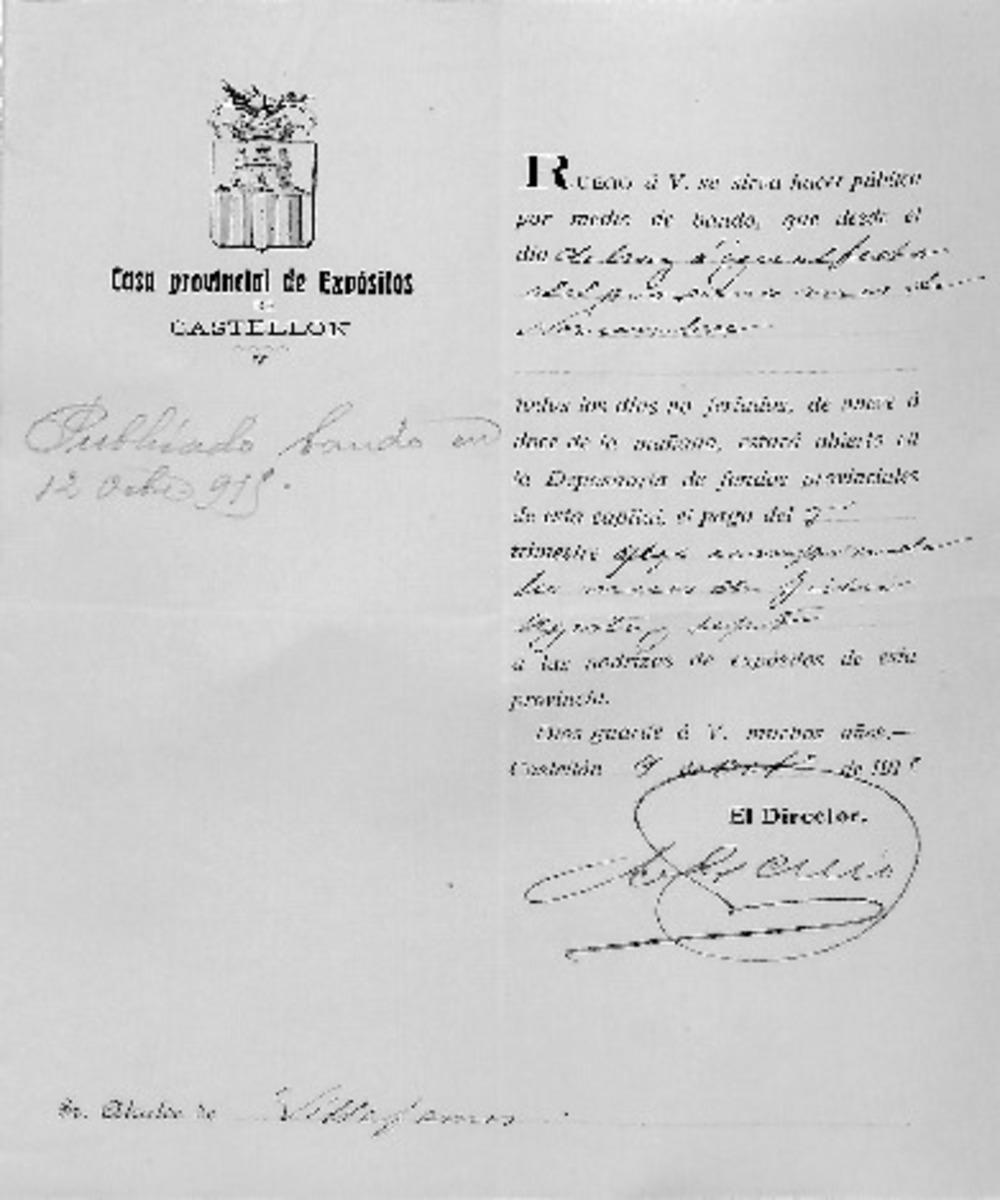 Casa provincial de Expósitos
DE
CASTELLON
Publicado bando en
12 Octbe 915.
RUEGO á V. se sirva hacer público
por medio de bando, que desde el
día de hoy á igual fecha
del próximo mes de
Noviembre
todos los días no feriados, de nueve á
doce de la mañana, estará abierto en
la Depositaría de fondos provinciales
de esta capital, el pago del 3er
trimestre
los meses de Julio
Agosto y
á las nodrizas de expósitos de esta
provincia.
Dios guarde á V. muchos años.—
Castellón 9 de de 1915
El Director,
Sr. Alcalde de Villafamés